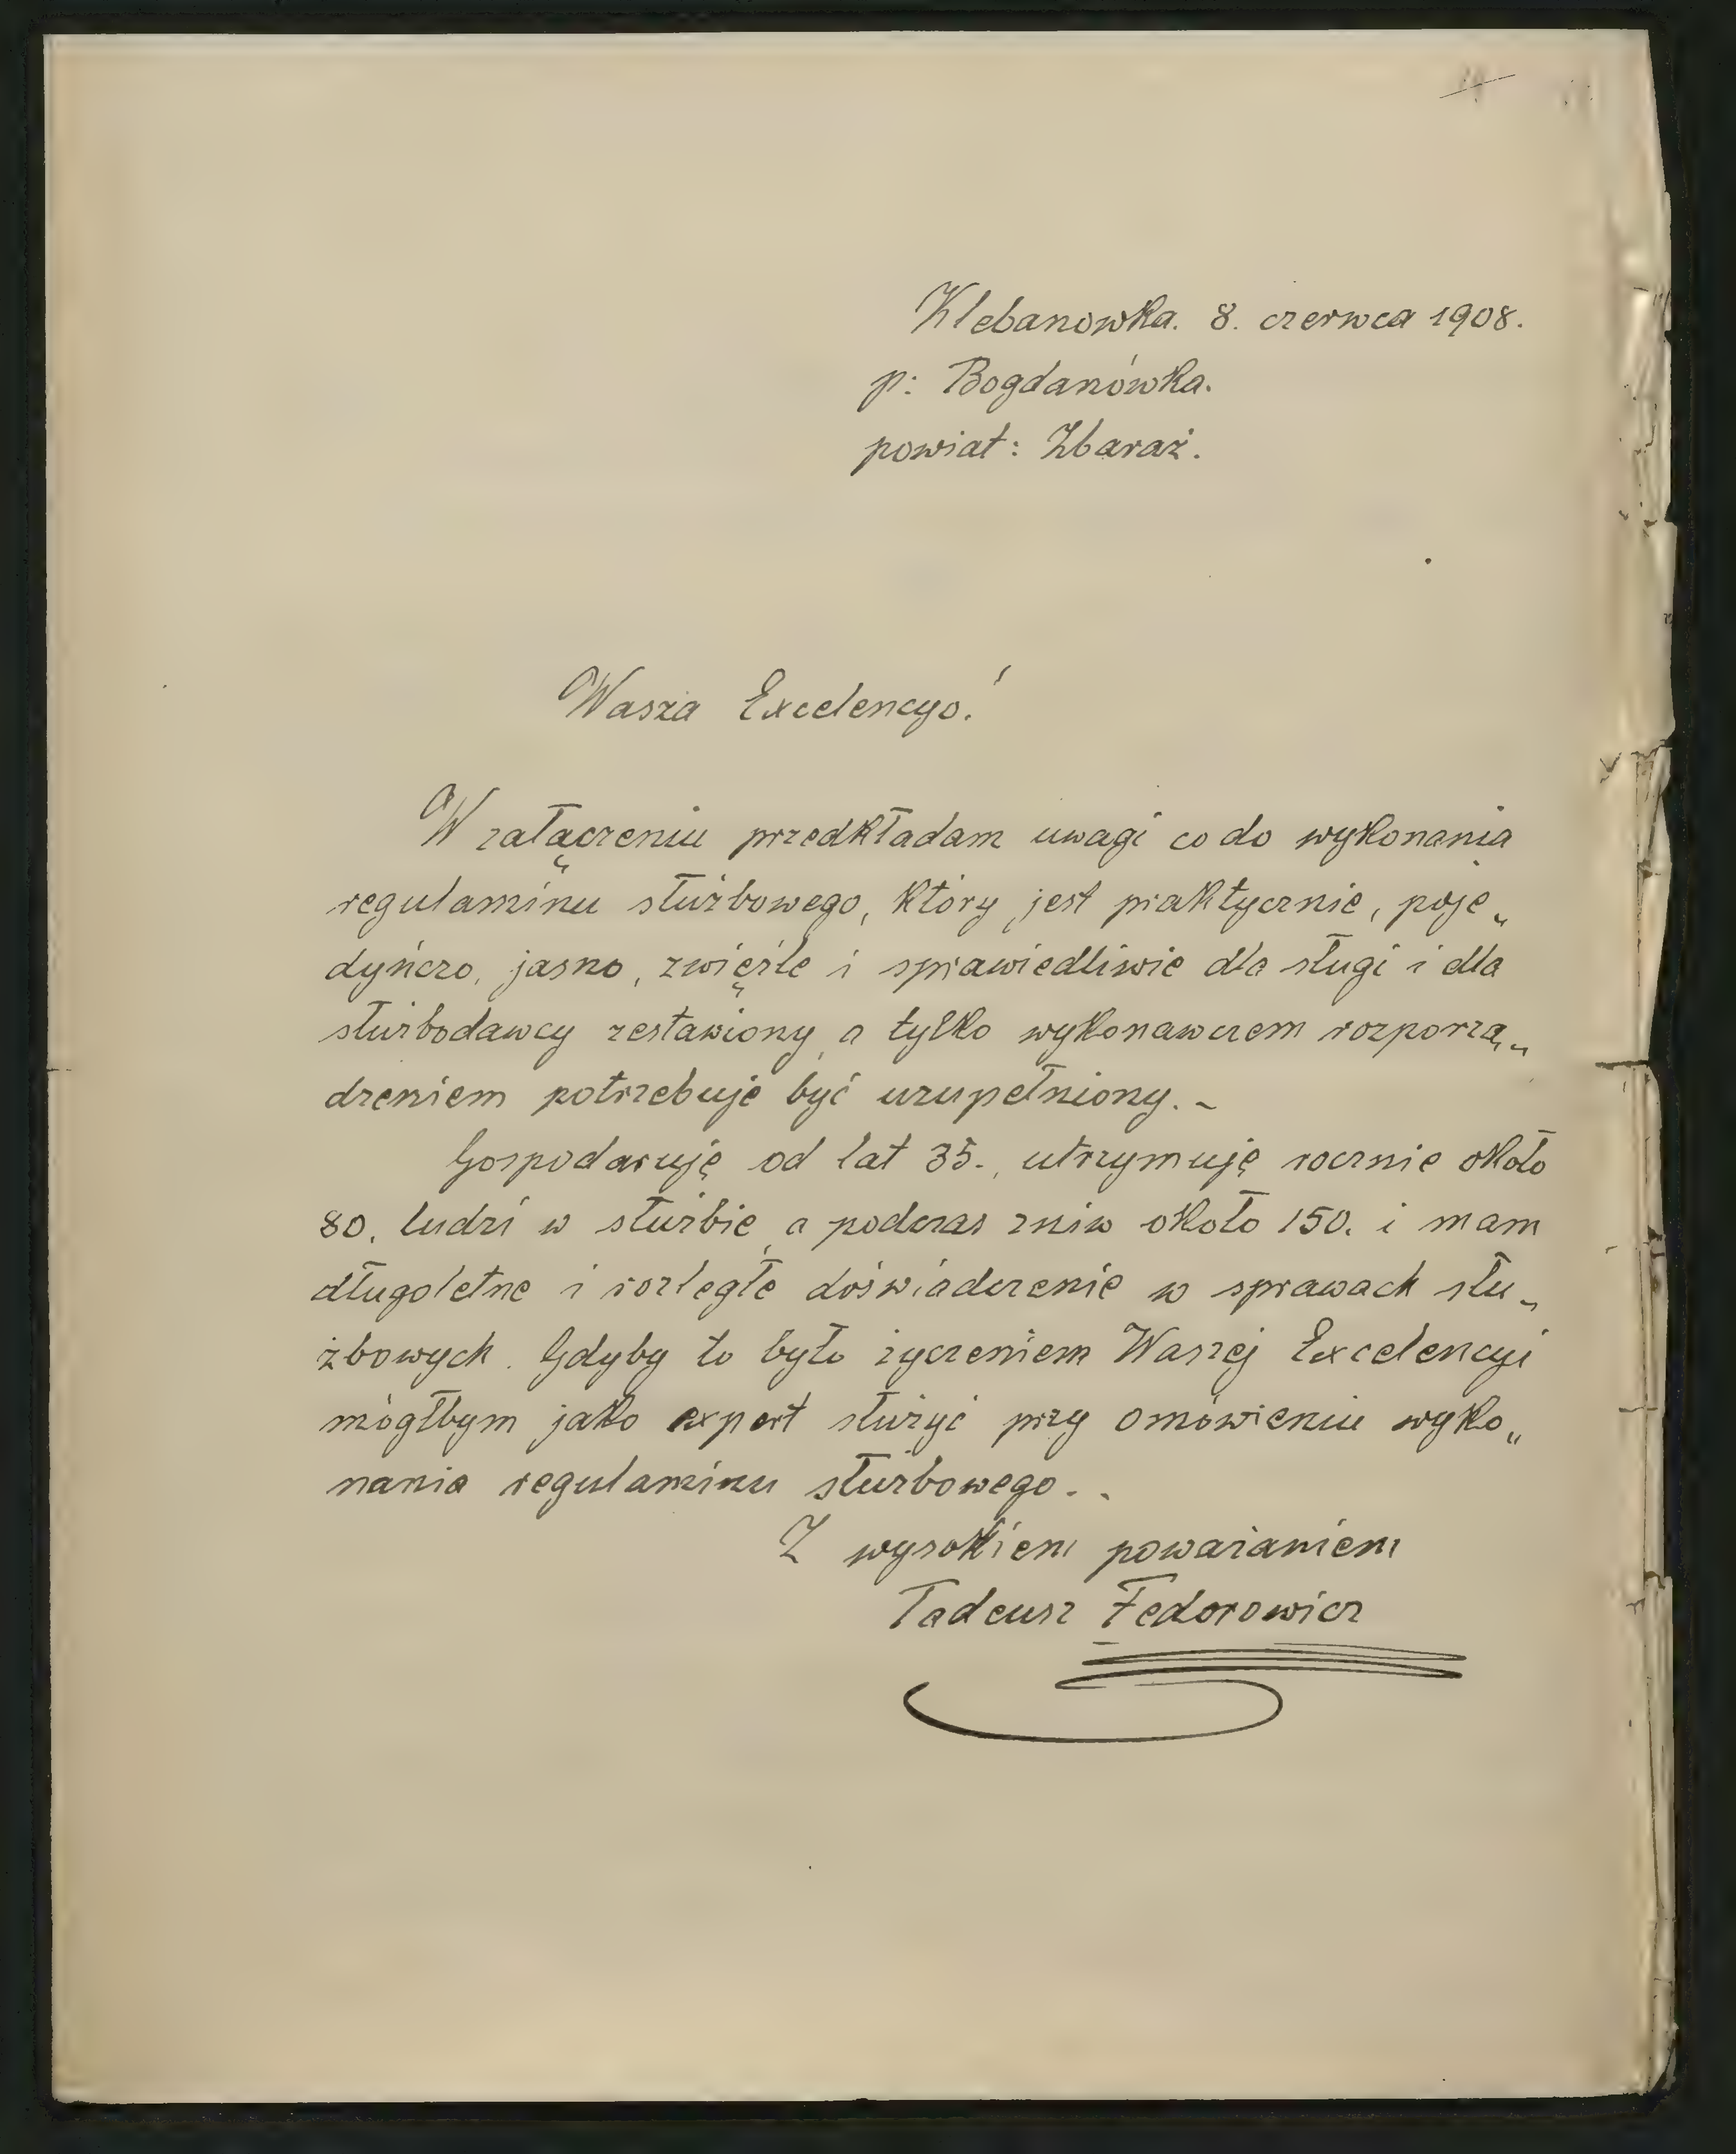 Klebanowka. 8. czerwca 1908.
p: Bogdanówka.
powiat: Zbaraż.
Wasza Excelencyo!
W załączeniu przedkładam uwagi co do wykonania
regulaminu służbowego, który jest praktycznie, poje„
dyńczo, jasno, zwięźle i sprawiedliwie dla sługi i dla
służbodawcy zestawiony, a tylko wykonawczem rozporzą„
dzeniem potrzebuje być uzupełniony. –
Gospodaruję od lat 35., utrzymuję rocznie około
80. ludzi w służbie, a podczas żniw około 150. i mam
długoletne i rozległe doświadczenie w sprawach słu„
żbowych. Gdyby to było życzeniem Waszej Excelencyi
mógłbym jako expert służyć przy omówieniu wyko„
nania regulaminu służbowego. –
Z wysokiem poważaniem
Tadeusz Fedorowicz